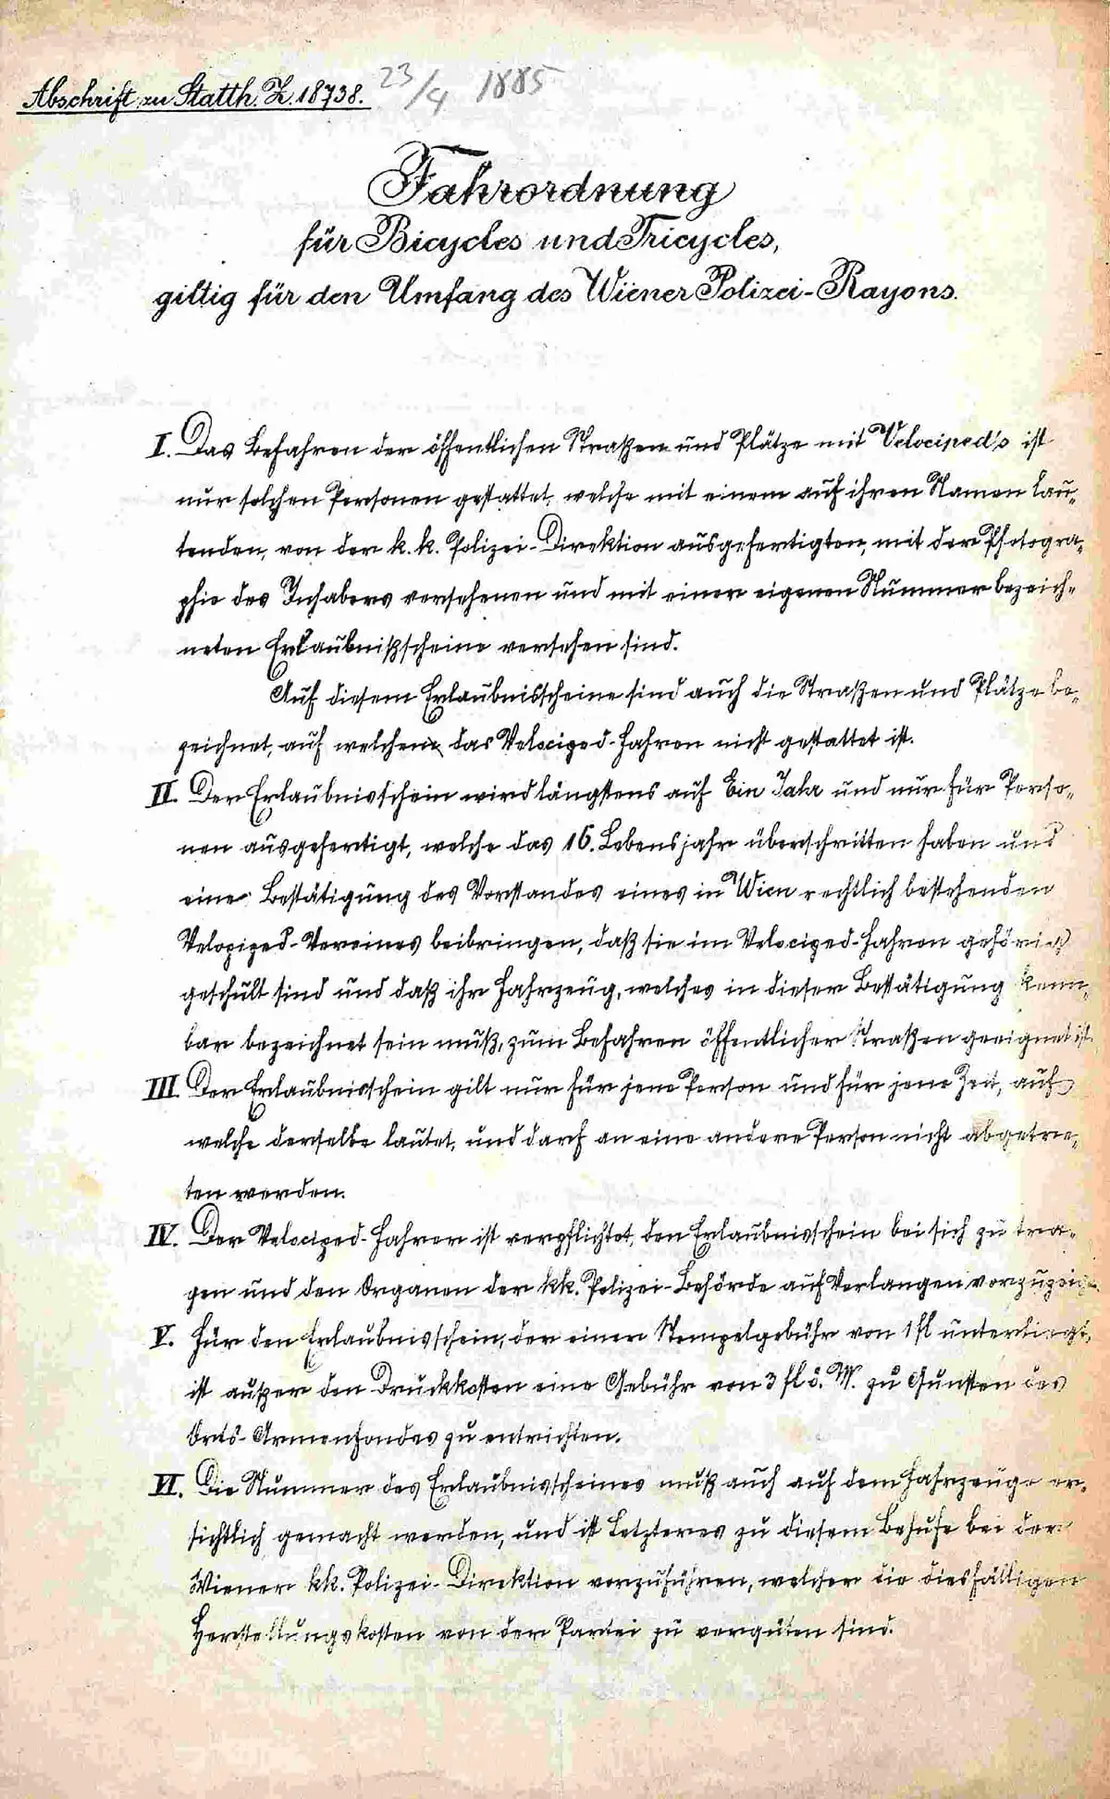 Abschrift zu Statth. Z. 18738. 23/4 1885
Fahrordnung
für Bicycles und Tricycles,
giltig für den Umfang des Wiener Polizei-Rayons.
I. Das Befahren der öffentlichen Straßen und Plätze mit Velociped's ist
nur solchen Personen gestattet, welche mit einem auf ihren Namen lau-
tenden, von der k. k. Polizei-Direktion ausgefertigten, mit der Photogra-
phie des Inhabers versehenen und mit einer eigenen Nummer bezeich-
neten Erlaubnißscheine versehen sind.
Auf diesem Erlaubnisscheine sind auch die Straßen und Plätze be-
zeichnet, auf welchen das Velociped-Fahren nicht gestattet ist.
II. Der Erlaubnisschein wird längstens auf Ein Jahr und nur für Perso-
nen ausgefertigt, welche das 16. Lebensjahr überschritten haben und
eine Bestätigung des Vorstandes eines in Wien rechtlich bestehenden
Velociped-Vereines beibringen, daß sie im Velociped-Fahren gehörig
geschult sind und daß ihr Fahrzeug, welches in dieser Bestätigung kenn-
bar bezeichnet sein muß, zum Befahren öffentlicher Straßen geeignet ist.
III. Der Erlaubnisschein gilt nur für jene Person und für jene Zeit, auf
welche derselbe lautet, und darf an eine andere Person nicht abgetre-
ten werden.
IV. Der Velociped-Fahrer ist verpflichtet, den Erlaubnisschein bei sich zu tra-
gen und den Organen der kk. Polizei-Behörde auf Verlangen vorzuzeigen.
V. Für den Erlaubnisschein, der einer Stempelgebühr von 1 fl unterliegt,
ist außer den Druckkosten eine Gebühr von 3 fl ö. W. zu Gunsten des
Orts-Armenfondes zu entrichten.
VI. Die Nummer des Erlaubnisscheines muß auch auf dem Fahrzeuge er-
sichtlich gemacht werden, und ist Letzteres zu diesem Behufe bei der
Wiener kk. Polizei-Direktion vorzuführen, welcher die diesfälligen
Herstellungskosten von der Partei zu vergüten sind.